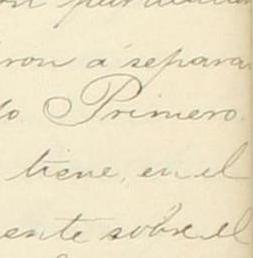 ron a separa
o Primero.
tiene, en el
ente sobre el